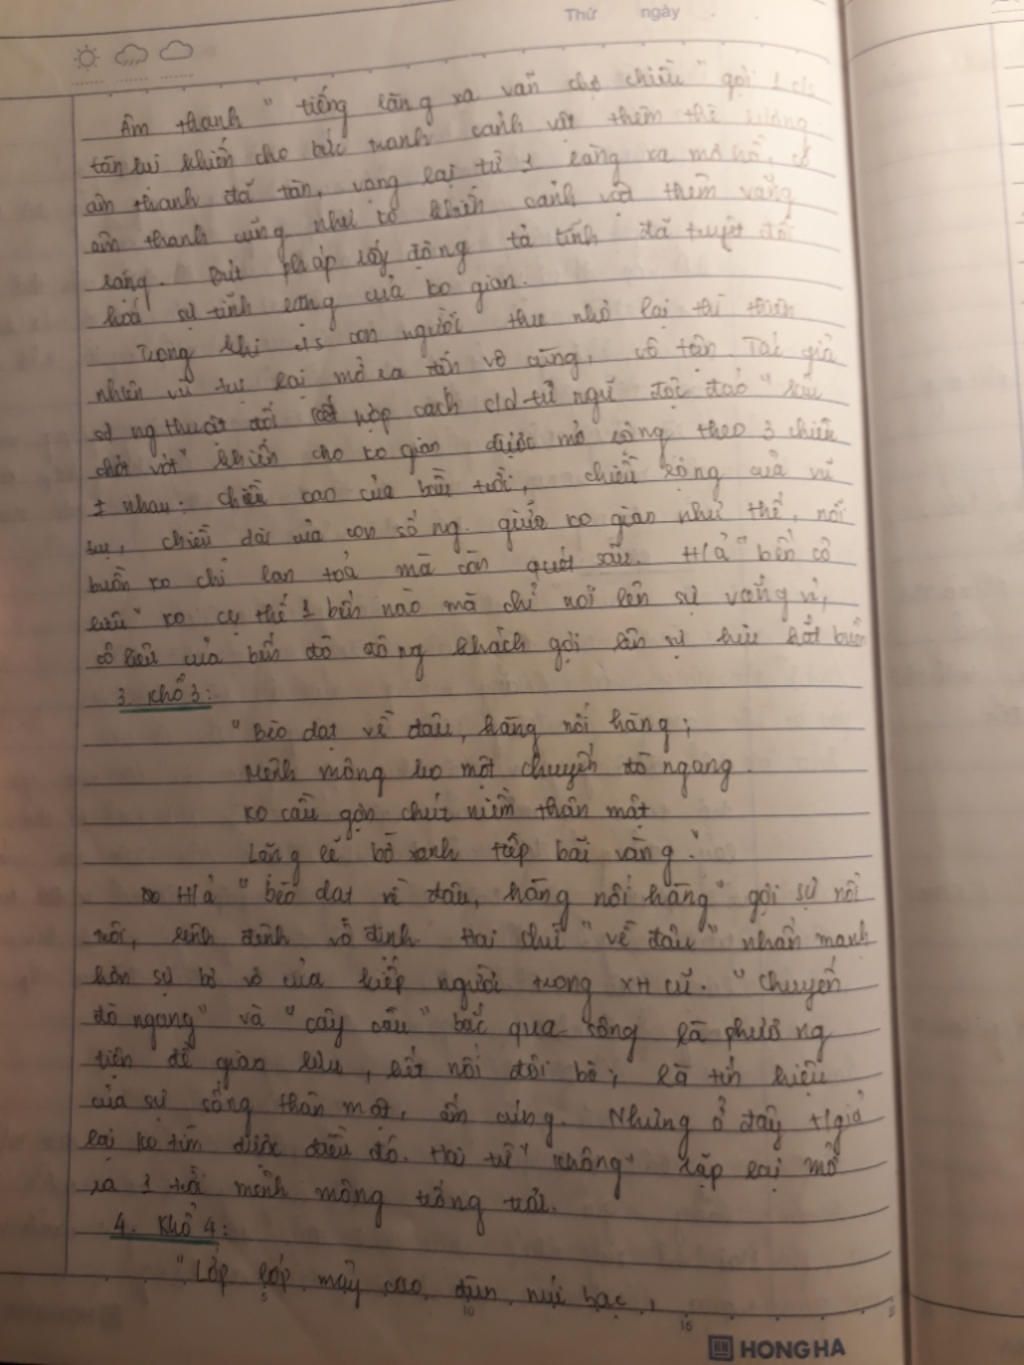 Thứ ngày
Âm thanh " tiếng làng xa vãn chợ chiều " gợi 1 c/s
tàn lụi khiến cho bức tranh cảnh vật thêm thê lương
âm thanh đã tàn, vọng lại từ 1 làng xa mơ hồ, có
âm thanh cũng như ko khiến cảnh vật thêm vắng
lặng. Bút pháp lấy động tả tĩnh đã tuyệt đối
hoá sự tĩnh lặng của ko gian.
Trong khi c/s con người thu nhỏ lại thì thiên
nhiên vũ trụ lại mở ra đến vô cùng, vô tận. Tác giả
sd ng thuật đối kết hợp cách d/đ từ ngữ độc đáo " sâu
chót vót" khiến cho ko gian được mở rộng theo 3 chiều
≠ nhau: chiều cao của bầu trời, chiều rộng của vũ
trụ, chiều dài của con sông. giữa ko gian như thế, nỗi
buồn ko chỉ lan toả mà còn quót sâu. H/ả " bến cô
liêu" ko cụ thể 1 bến nào mà chỉ nói lên sự vắng vẻ,
cô liêu của bến đò sông khách gợi lên sự hiu hắt buồn
3. Khổ 3:
" Bèo dạt về đâu, hàng nối hàng;
Mênh mông ko một chuyến đò ngang.
Ko cầu gợi chút niềm thân mật
Lặng lẽ bờ xanh tiếp bãi vàng."
H/ả " bèo dạt về đâu, hàng nối hàng" gợi sự nổi
nôi, lênh đênh vô định. Hai chữ " về đâu " nhấn mạnh
hơn sự bơ vơ của kiếp người trong XH cũ. " Chuyến
đò ngang" và " cây cầu " bắc qua sông là phương
tiện để giao lưu, kết nối đôi bờ; là tín hiệu
của sự sống thân mật, ấm cúng. Nhưng ở đây t/giả
lại ko tìm được điều đó. Hai từ " không" lặp lại mở
ra 1 trời mênh mông trống trải.
4. Khổ 4:
" Lớp lớp mây cao đùn núi bạc,
5 10 15
HONG HA